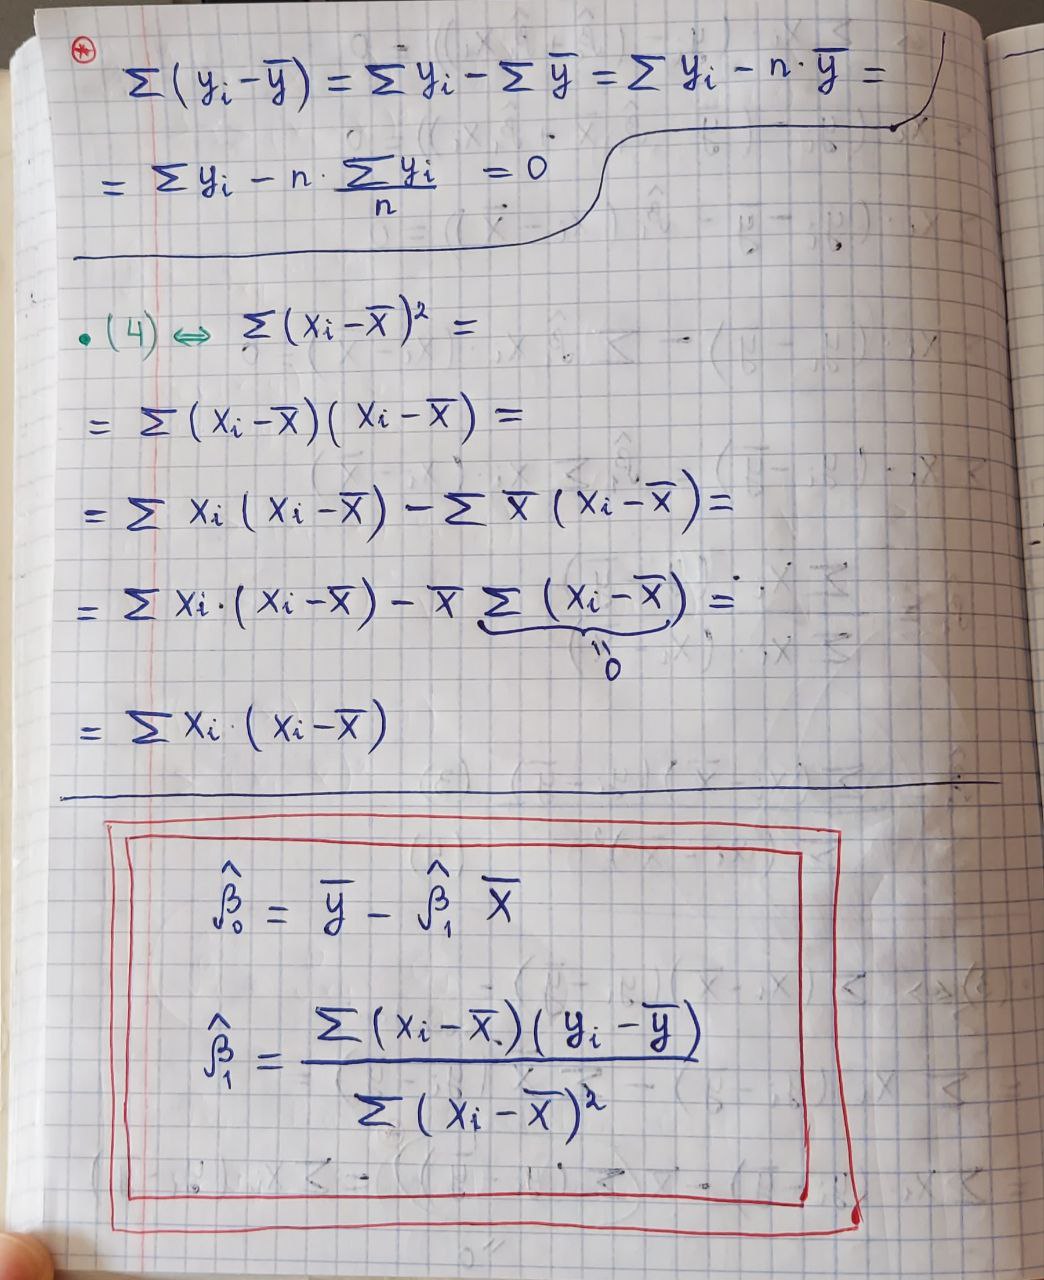 * Σ(yᵢ-ȳ) = Σ yᵢ - Σ ȳ = Σ yᵢ - n·ȳ =
= Σ yᵢ - n· Σ yᵢ / n = 0
• (4) ⇔ Σ(xᵢ-x̄)² =
= Σ(xᵢ-x̄)(xᵢ-x̄) =
= Σ xᵢ(xᵢ-x̄) - Σ x̄(xᵢ-x̄) =
= Σ xᵢ·(xᵢ-x̄) - x̄ Σ(xᵢ-x̄) =
"0
= Σ xᵢ·(xᵢ-x̄)
β̂₀ = ȳ - β̂₁ x̄
β̂₁ = Σ(xᵢ-x̄)(yᵢ-ȳ) / Σ(xᵢ-x̄)²